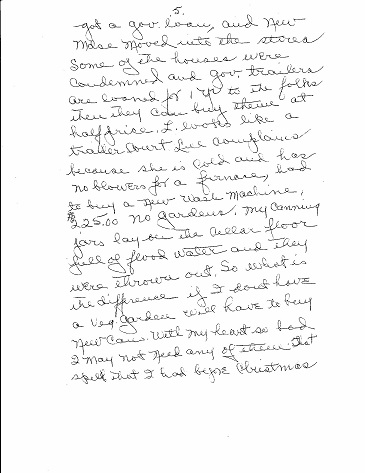 5.
got a gov. loan, and New
Mdse moved into the stores
Some of the houses were
Condemned and gov. trailers
are loaned for 1 yr to the folks
then they can buy them at
half price. L. looks like a
trailer court. Sue complains
because she is cold and has
no blowers for a furnace, had
to buy a new Wash Machine,
$25.00 no gardens, my canning
jars lay on the cellar floor
full of flood water and they
were thrown out. So what is
the difference if I don't have
a veg. garden will have to buy
new cans. With my heart so bad
I may not need any of them that
spell that I had before Christmas